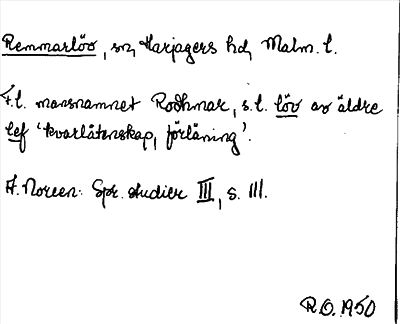 Remmarlöv, sn, Harjagers hd, Malm. l.
F.l. mansnamnet Rodhmar, s.l. löv av äldre
lef 'kvarlåtenskap, förläning'.
A. Noreen: Spr. studier III, s. 111.
R.O. 1950